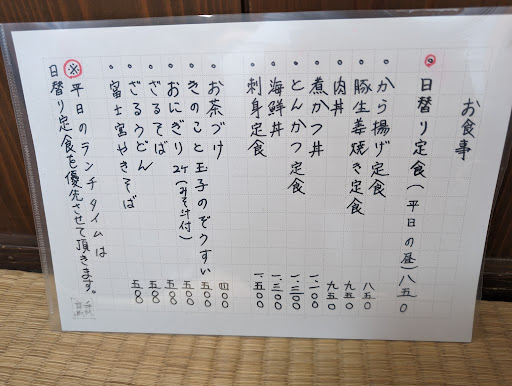 お食事
◉ 日替り定食(平日の昼)八五〇
・から揚げ定食 八五〇
・豚生姜焼き定食 九五〇
・肉丼 九五〇
・煮かつ丼 一.一〇〇
・とんかつ定食 一.三〇〇
・海鮮丼 一.三〇〇
・刺身定食 一.五〇〇
・お茶づけ 四〇〇
・きのこと玉子のぞうすい 五〇〇
・おにぎり 2ケ(みそ汁付) 五〇〇
・ざるそば 五〇〇
・ざるうどん 五〇〇
・富士宮やきそば 五〇〇
※ 平日のランチタイムは
日替り定食を優先させて頂きます。